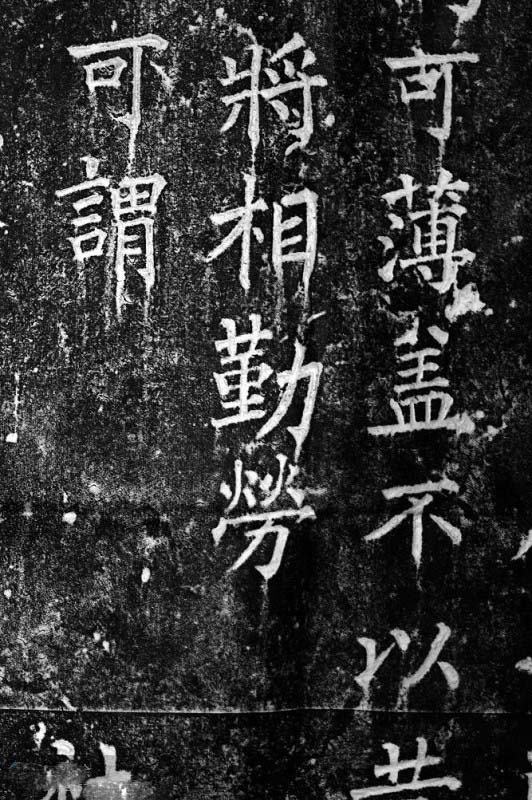 可薄盖不以昔
將相勤勞
可謂